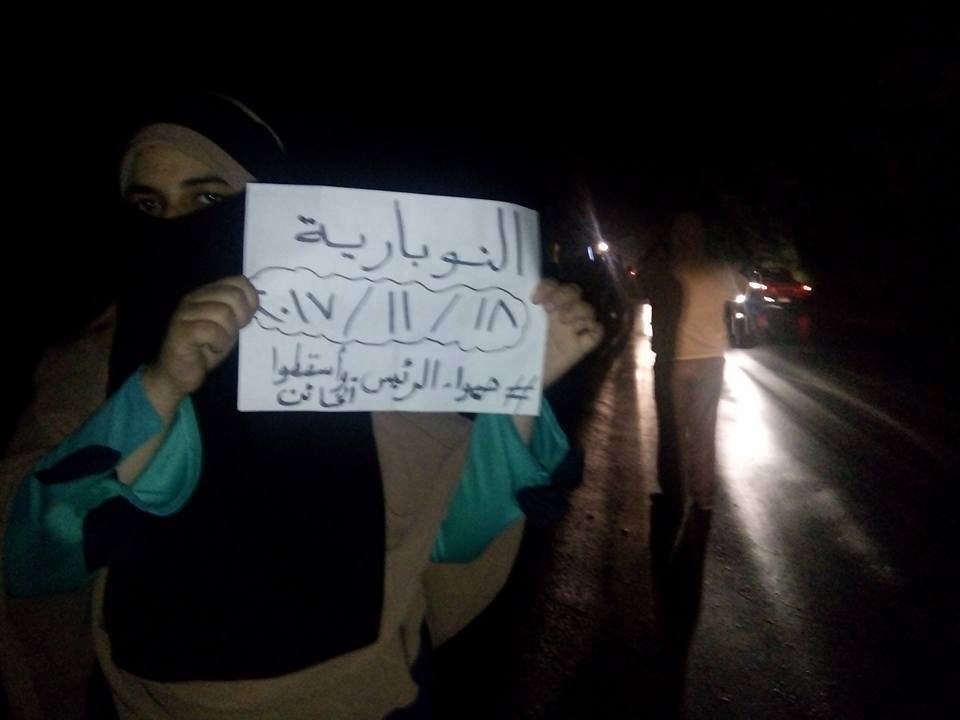 النوبارية
١٨ / ١١ / ٢٠١٧
# حموا الرئيس وأسقطوا
الخائن